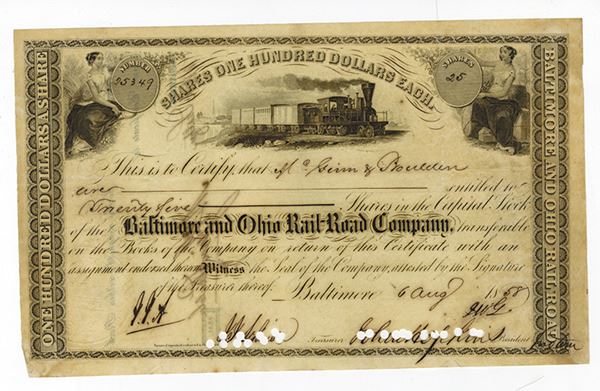 NUMBER
25349
SHARES ONE HUNDRED DOLLARS EACH.
SHARES
25
ONE HUNDRED DOLLARS A SHARE
BALTIMORE AND OHIO RAIL-ROAD
This is to Certify, that McGinn & Boulden
are entitled to
Twenty five Shares in the Capital Stock
of the Baltimore and Ohio Rail-Road Company, Transferable
on the Books of the Company on return of this Certificate with an
assignment endorsed thereon Witness the Seal of the Company, attested by the Signature
of the Treasurer thereof. Baltimore 6 Aug 1858
J.J.A
Treasurer
President